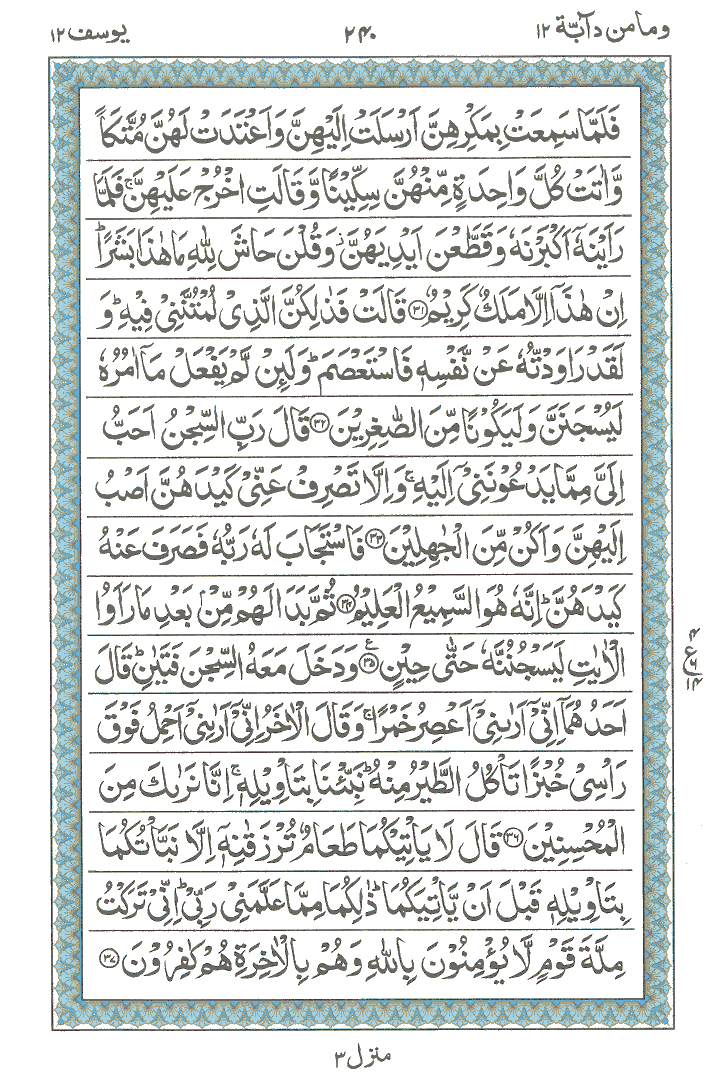 وما من دآبۃ ۱۲
۲۴۰
یوسف ۱۲
فَلَمَّا سَمِعَتْ بِمَكْرِهِنَّ اَرْسَلَتْ اِلَيْهِنَّ وَاَعْتَدَتْ لَهُنَّ مُتَّكَاً
وَّاٰتَتْ كُلَّ وَاحِدَةٍ مِّنْهُنَّ سِكِّيْنًا وَّقَالَتِ اخْرُجْ عَلَيْهِنَّ ۚ فَلَمَّا
رَاَيْنَهٗۤ اَكْبَرْنَهٗ وَقَطَّعْنَ اَيْدِيَهُنَّ ۡ وَقُلْنَ حَاشَ لِلّٰهِ مَا هٰذَا بَشَرًا ؕ
اِنْ هٰذَاۤ اِلَّا مَلَكٌ كَرِيْمٌ ۳۱ قَالَتْ فَذٰلِكُنَّ الَّذِيْ لُمْتُنَّنِيْ فِيْهِ ؕ وَ
لَقَدْ رَاوَدْتُّهٗ عَنْ نَّفْسِهٖ فَاسْتَعْصَمَ ؕ وَلَئِنْ لَّمْ يَفْعَلْ مَاۤ اٰمُرُهٗ
لَيُسْجَنَنَّ وَلَيَكُوْنًا مِّنَ الصّٰغِرِيْنَ ۳۲ قَالَ رَبِّ السِّجْنُ اَحَبُّ
اِلَيَّ مِمَّا يَدْعُوْنَنِيْۤ اِلَيْهِ ۚ وَاِلَّا تَصْرِفْ عَنِّيْ كَيْدَهُنَّ اَصْبُ
اِلَيْهِنَّ وَاَكُنْ مِّنَ الْجٰهِلِيْنَ ۳۳ فَاسْتَجَابَ لَهٗ رَبُّهٗ فَصَرَفَ عَنْهُ
كَيْدَهُنَّ ؕ اِنَّهٗ هُوَ السَّمِيْعُ الْعَلِيْمُ ۳۴ ثُمَّ بَدَا لَهُمْ مِّنْۢ بَعْدِ مَا رَاَوُا
الْاٰيٰتِ لَيَسْجُنُنَّهٗ حَتّٰى حِيْنٍ ۳۵ ع وَدَخَلَ مَعَهُ السِّجْنَ فَتَيٰنِ ؕ قَالَ
۴
ع ۶
۱۴
اَحَدُهُمَاۤ اِنِّيْۤ اَرٰىنِيْۤ اَعْصِرُ خَمْرًا ۚ وَقَالَ الْاٰخَرُ اِنِّيْۤ اَرٰىنِيْۤ اَحْمِلُ فَوْقَ
رَاْسِيْ خُبْزًا تَاْكُلُ الطَّيْرُ مِنْهُ ؕ نَبِّئْنَا بِتَاْوِيْلِهٖ ۚ اِنَّا نَرٰىكَ مِنَ
الْمُحْسِنِيْنَ ۳۶ قَالَ لَا يَاْتِيْكُمَا طَعَامٌ تُرْزَقٰنِهٖۤ اِلَّا نَبَّاْتُكُمَا
بِتَاْوِيْلِهٖ قَبْلَ اَنْ يَّاْتِيَكُمَا ؕ ذٰلِكُمَا مِمَّا عَلَّمَنِيْ رَبِّيْ ؕ اِنِّيْ تَرَكْتُ
مِلَّةَ قَوْمٍ لَّا يُؤْمِنُوْنَ بِاللّٰهِ وَهُمْ بِالْاٰخِرَةِ هُمْ كٰفِرُوْنَ ۳۷
منزل ۳